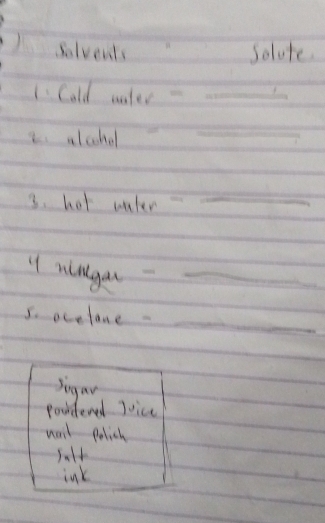 1) Solvents Solute
1. Cold water -
2. alcohol -
3. hot water -
4 vinegar -
5. acetane -
sugar
powdered Juice
nail polich
salt
ink